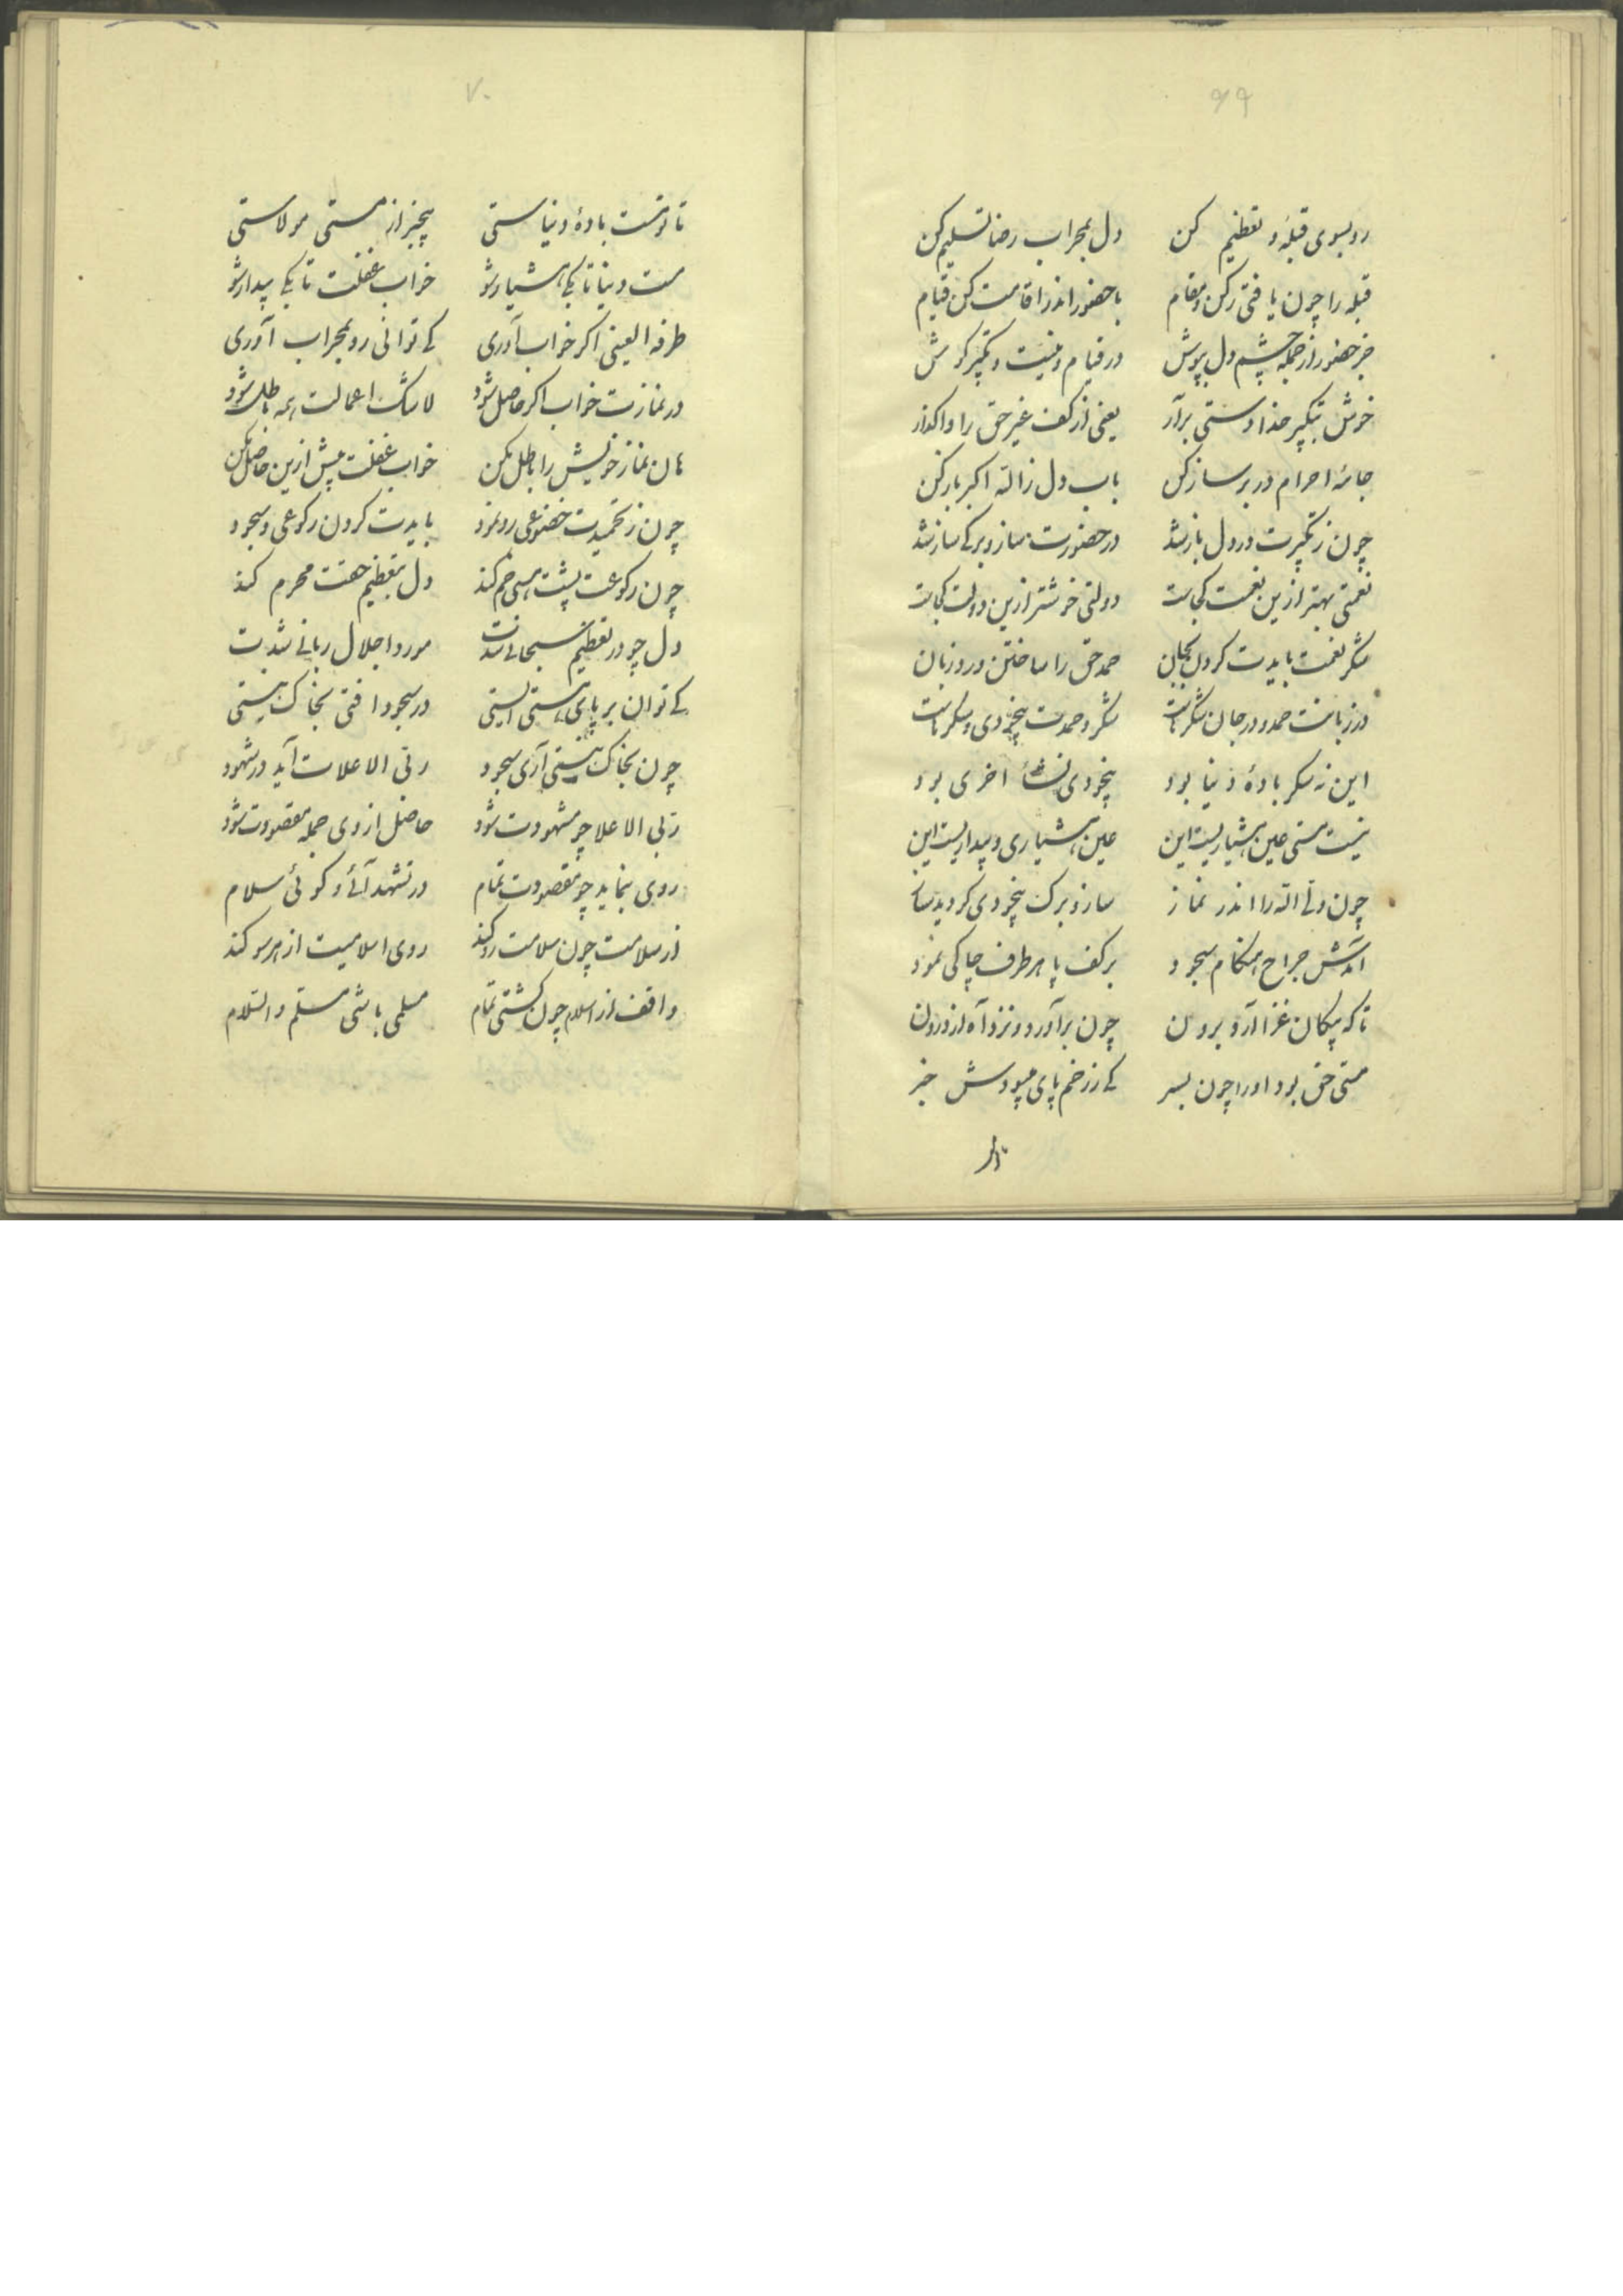 ۶۹
رو بسوی قبله و تعظیم کن دل بمحراب رضا تسلیم کن
قبله را چون یافتی رکن و مقام با حضور اندر اقامت کن قیام
جز حضور از جمله چشم دل بپوش در قیام و نیت و تکبیر کوش
خوش بتکبیر خدا دستی برآر یعنی از کف غیر حق را واکذار
جامهٔ احرام در بر ساز کن باب دل ز الله اکبر باز کن
چون ز تکبیرت در دل باز شد در حضورت ساز و برکی ساز شد
نعمتی بهتر ازین نعمت کجاست دولتی خوشتر ازین دولت کجاست
شکر نعمت بایدت کردن بجان حمد حق را ساختن ورد زبان
در زبانت حمد و در جان شکرهاست شکر و حمدت بیخودی و سکرهاست
این نه سکر بادهٔ دنیا بود بیخودی نشأ اخری بود
نیست مستی عین هشیاریست این عین هشیاری و بیداریست این
چون ولی الله را اندر نماز ساز و برک بیخودی کردید ساز
آمدش جراح هنکام سجود بر کف پا هر طرف چاکی نمود
تا که پیکان غزا آرد برون چون برآورد و نزد آه از درون
مستی حق بود او را چون بسر کی ز زخم پای میبودش خبر
تا
۷۰
تا توئست بادهٔ دنیاستی بیخبر از مستی مولاستی
مست دنیا تا بکی هشیار شو خواب غفلت تا بکی بیدار شو
طرفة العینی اکر خواب آوری کی توانی رو بمحراب آوری
در نمازت خواب اکر حاصل شود لاشک اعمالت همه باطل شود
هان نماز خویش را باطل مکن خواب غفلت بیش ازین حاصل مکن
چون ز تحمیدت خضوعی رو نمود بایدت کردن رکوعی و سجود
چون رکوعت پشت هستی خم کند دل بتعظیم حقت محرم کند
دل چو در تعظیم سبحانی شدت مورد اجلال ربانی شدت
کی توان بر پای هستی ایستی در سجود افتی بخاک نیستی
چون بخاک نیستی آری سجود ربی الاعلات آید در شهود
ربی الاعلا چو مشهودت شود حاصل از وی جمله مقصودت شود
روی بنماید چو مقصودت تمام در تشهد آئی و کوئی سلام
از سلامت چون سلامت رو کند روی اسلامیت از هر سو کند
واقف از اسلام چون کشتی تمام مسلمی باشی مسلم والسلام